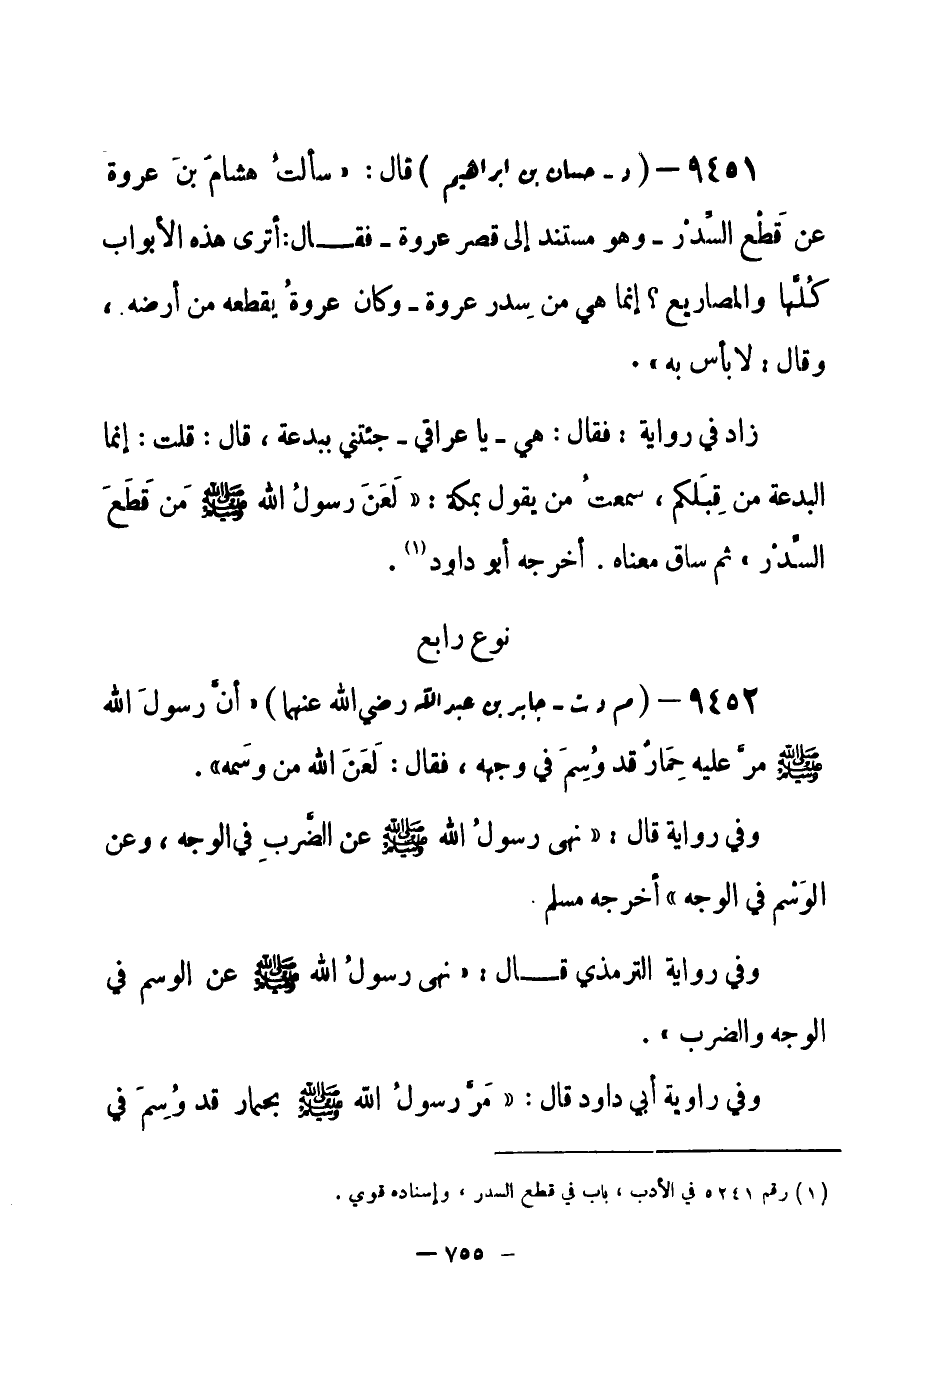 ٩٤٥١ — ( د ـ حسان بن ابراهيم ) قال : « سألتُ هشامَ بنَ عروة
عن قَطْع السِّدْر ـ وهو مستند إلى قصر عروة ـ فقـــال : أترى هذه الأبواب
كُلَّها والمصاريع ؟ إنما هي من سِدر عروة ـ وكان عروةُ يقطعه من أرضه . ،
وقال : لا بأس به » .
زاد في رواية : فقال : هي ـ يا عراقي ـ جئتني ببدعة ، قال : قلت : إنما
البدعة من قِبَلكم ، سمعتُ من يقول بمكة : « لَعَنَ رسولُ الله ﷺ مَن قَطَعَ
السِّدْر » ثم ساق معناه . أخرجه أبو داود (١) .
نوع رابع
٩٤٥٢ — ( م د ت ـ جابر بن عبد الله رضي الله عنهما ) « أنَّ رسولَ الله
ﷺ مرَّ عليه حِمَارٌ قد وُسِمَ في وجهه ، فقال : لَعَنَ الله من وسَمه » .
وفي رواية قال : « نهى رسولُ الله ﷺ عن الضَّربِ في الوجه ، وعن
الوَسْم في الوجه » أخرجه مسلم .
وفي رواية الترمذي قـــال : « نهى رسولُ الله ﷺ عن الوسم في
الوجه والضرب » .
وفي راوية أبي داود قال : « مَرَّ رسولُ الله ﷺ بحمار قد وُسِمَ في
(١) رقم ٥٢٤١ في الأدب ، باب في قطع السدر ، وإسناده قوي .
— ٧٥٥ —